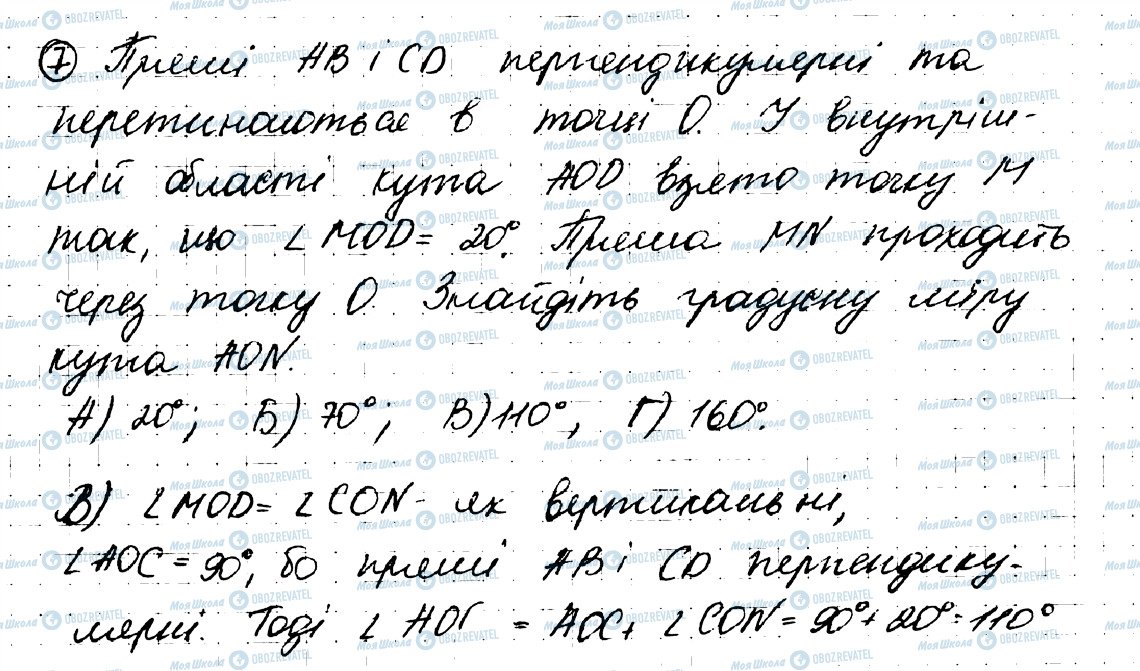 7 Прямі AB і CD перпендикулярні та
перетинаються в точці O. У внутріш-
ній області кута AOD взято точку M
так, що ∠MOD = 20°. Пряма MN проходить
через точку O. Знайдіть градусну міру
кута AON.
А) 20°; Б) 70°; В) 110°, Г) 160°.
В) ∠MOD = ∠CON - як вертикальні,
∠AOC = 90°, бо прямі AB і CD перпендику-
лярні. Тоді ∠ = AOC + ∠CON = 90° + 20° = 110°